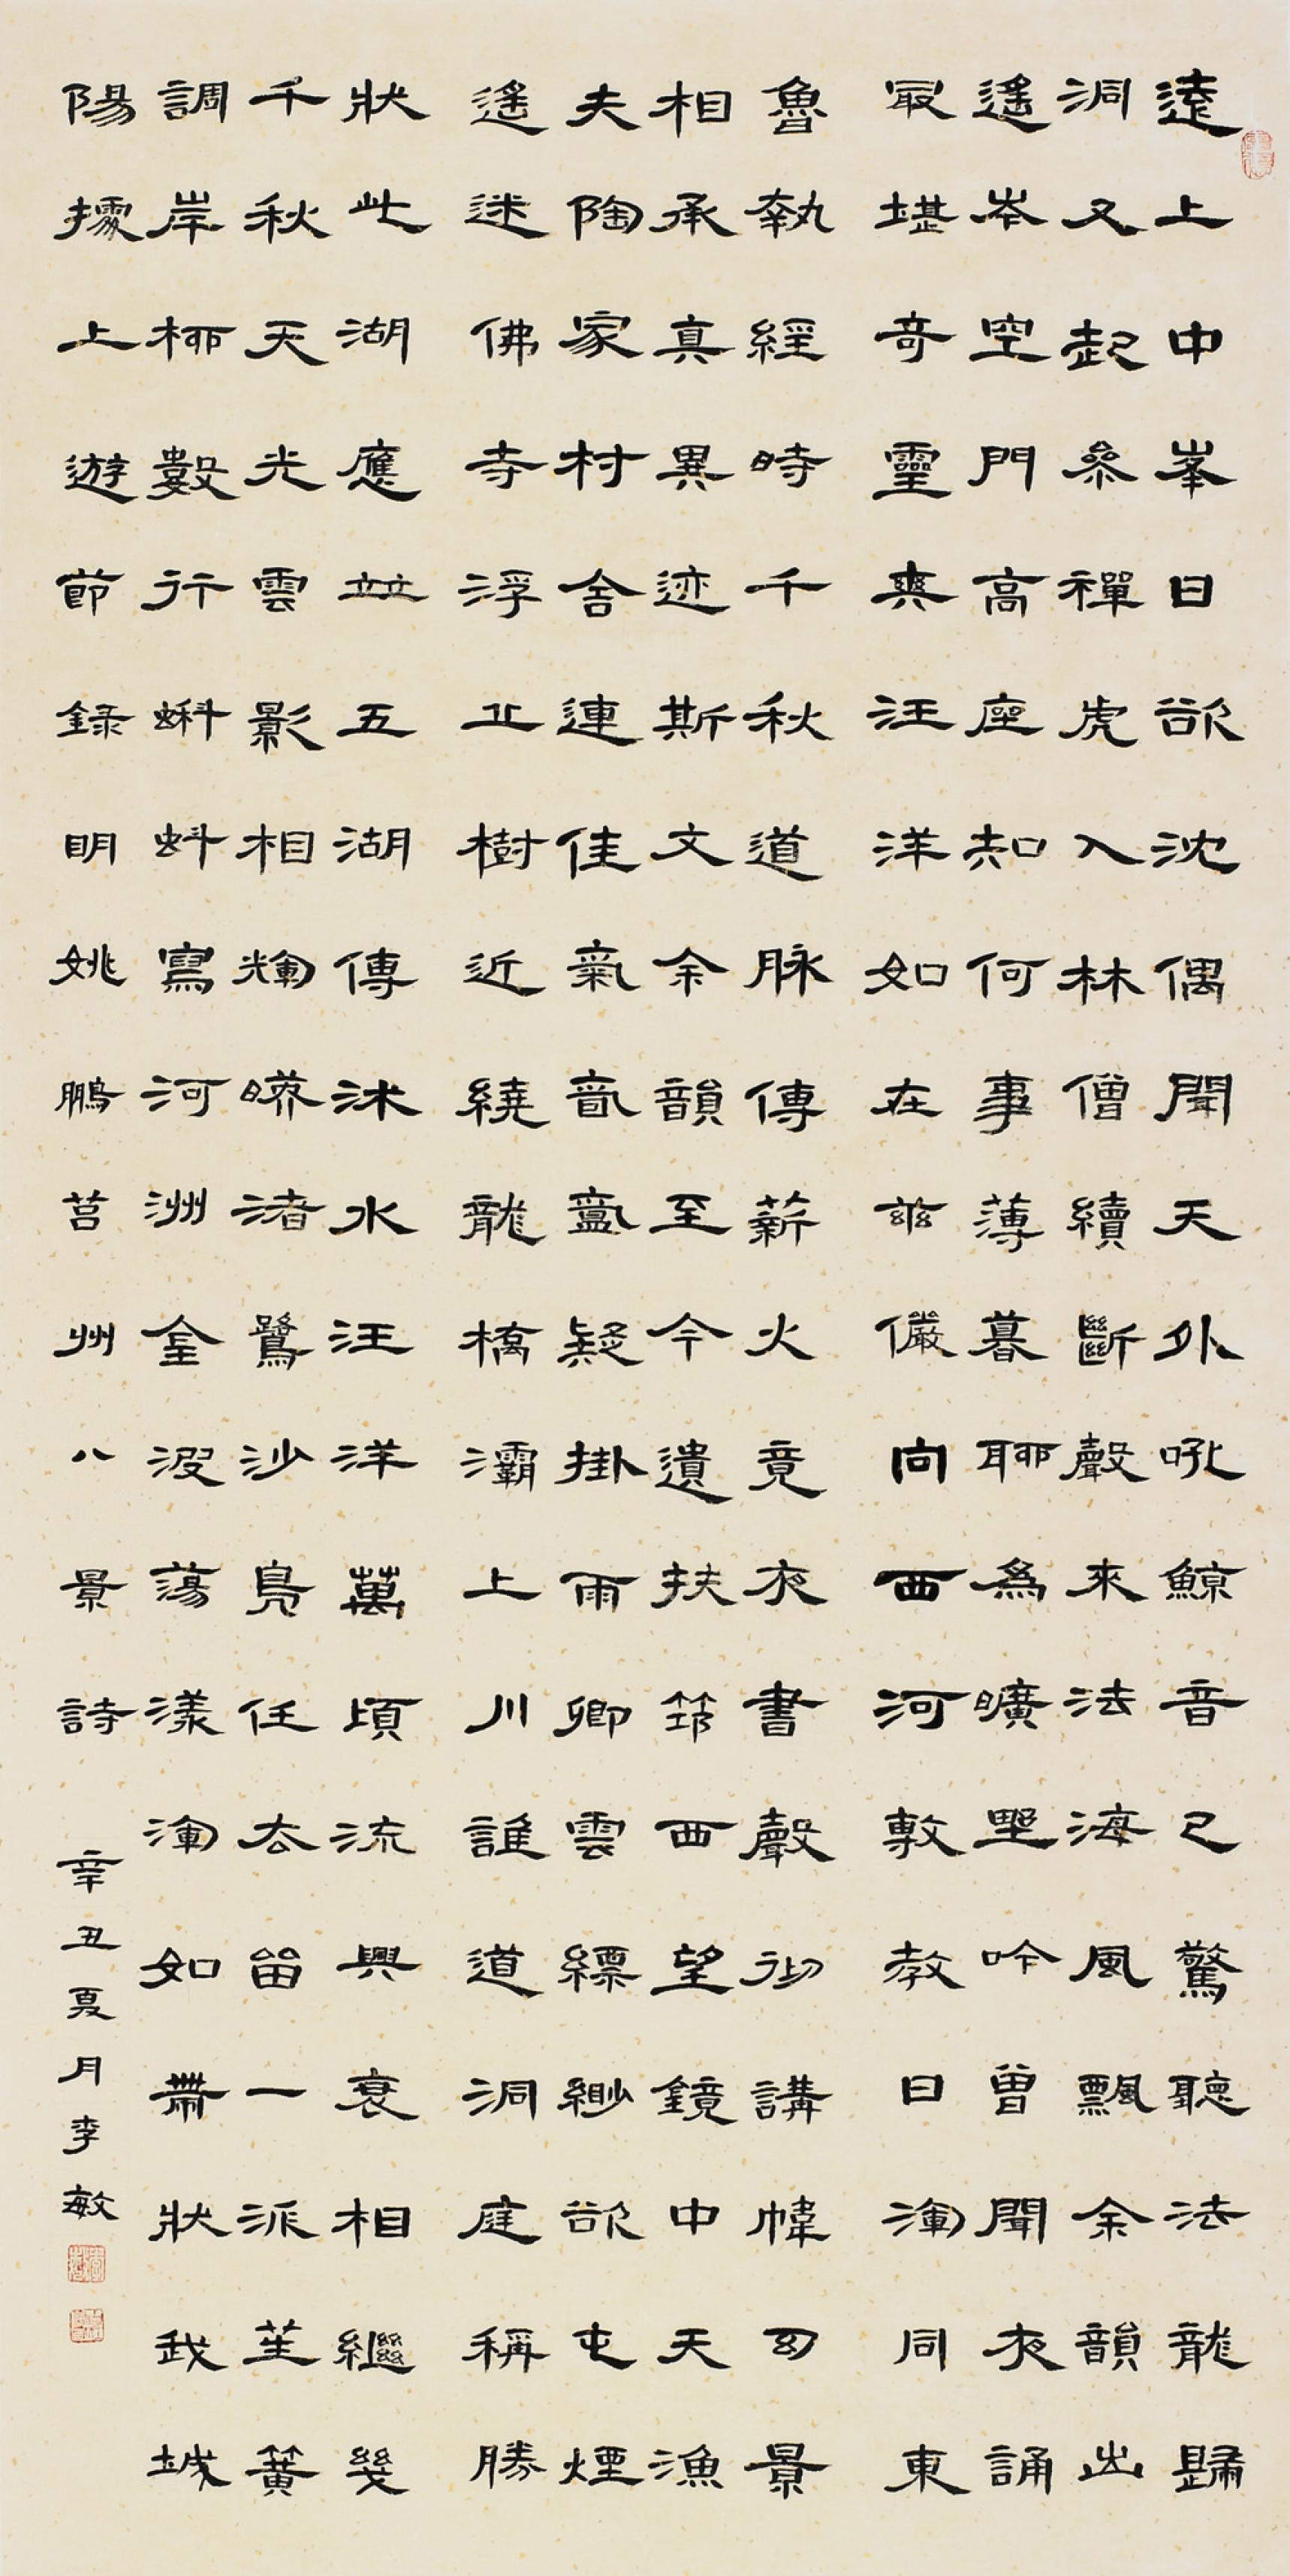 遠上中峯日欲沈偶聞天外吼鯨音已驚聽法龍歸
洞又起參禪虎入林僧續斷聲來法海風飄余韻出
遙岑空門高座知何事薄暮聊為曠野吟曾聞夜誦
最堪奇靈爽汪洋如在茲儼向西河敷教日渾同東
魯執經時千秋道脉傳薪火竟夜書聲彻講幃勾景
相承真異迹斯文余韻至今遺扶筇西望鏡中天漁
夫陶家村舍連佳氣氤氳疑掛雨卿雲縹緲欲屯煙
遙迷佛寺浮丘樹近繞龍橋灞上川誰道洞庭稱勝
狀此湖應並五湖傳沭水汪洋萬頃流興衰相繼幾
千秋天光雲影相輝暎渚鷺沙鳧任去留一派笙簧
調岸柳數行蝌蚪寫河洲金波蕩漾渾如帶狀我城
陽據上遊節錄明姚鵬莒州八景詩
辛丑夏月李敏